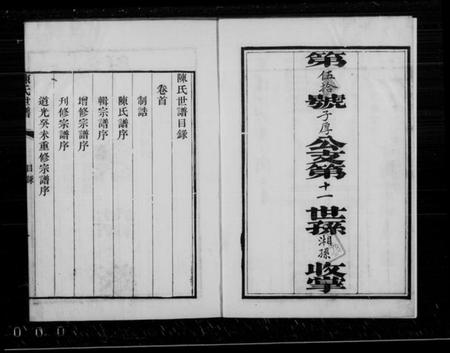 第伍拾號子厚公支第十一世孫湘孫收掌
陳氏世譜目錄
卷首
制誥
陳氏譜序
輯宗譜序
增修宗譜序
刋修宗譜序
道光癸未重修宗譜序
陳氏世譜 目錄